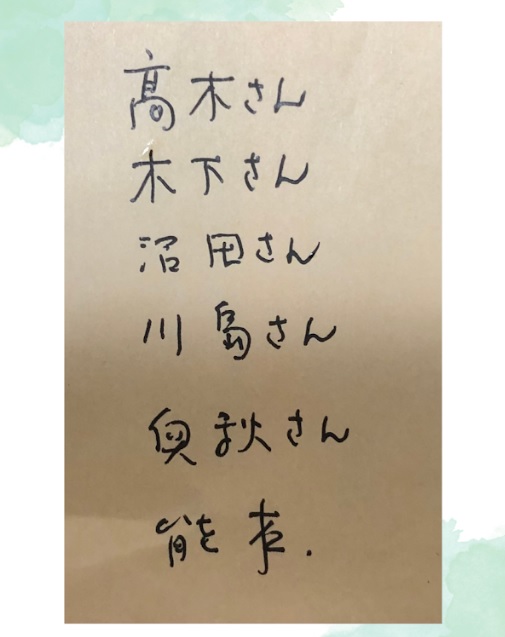 髙木さん
木下さん
沼田さん
川島さん
奥秋さん
能